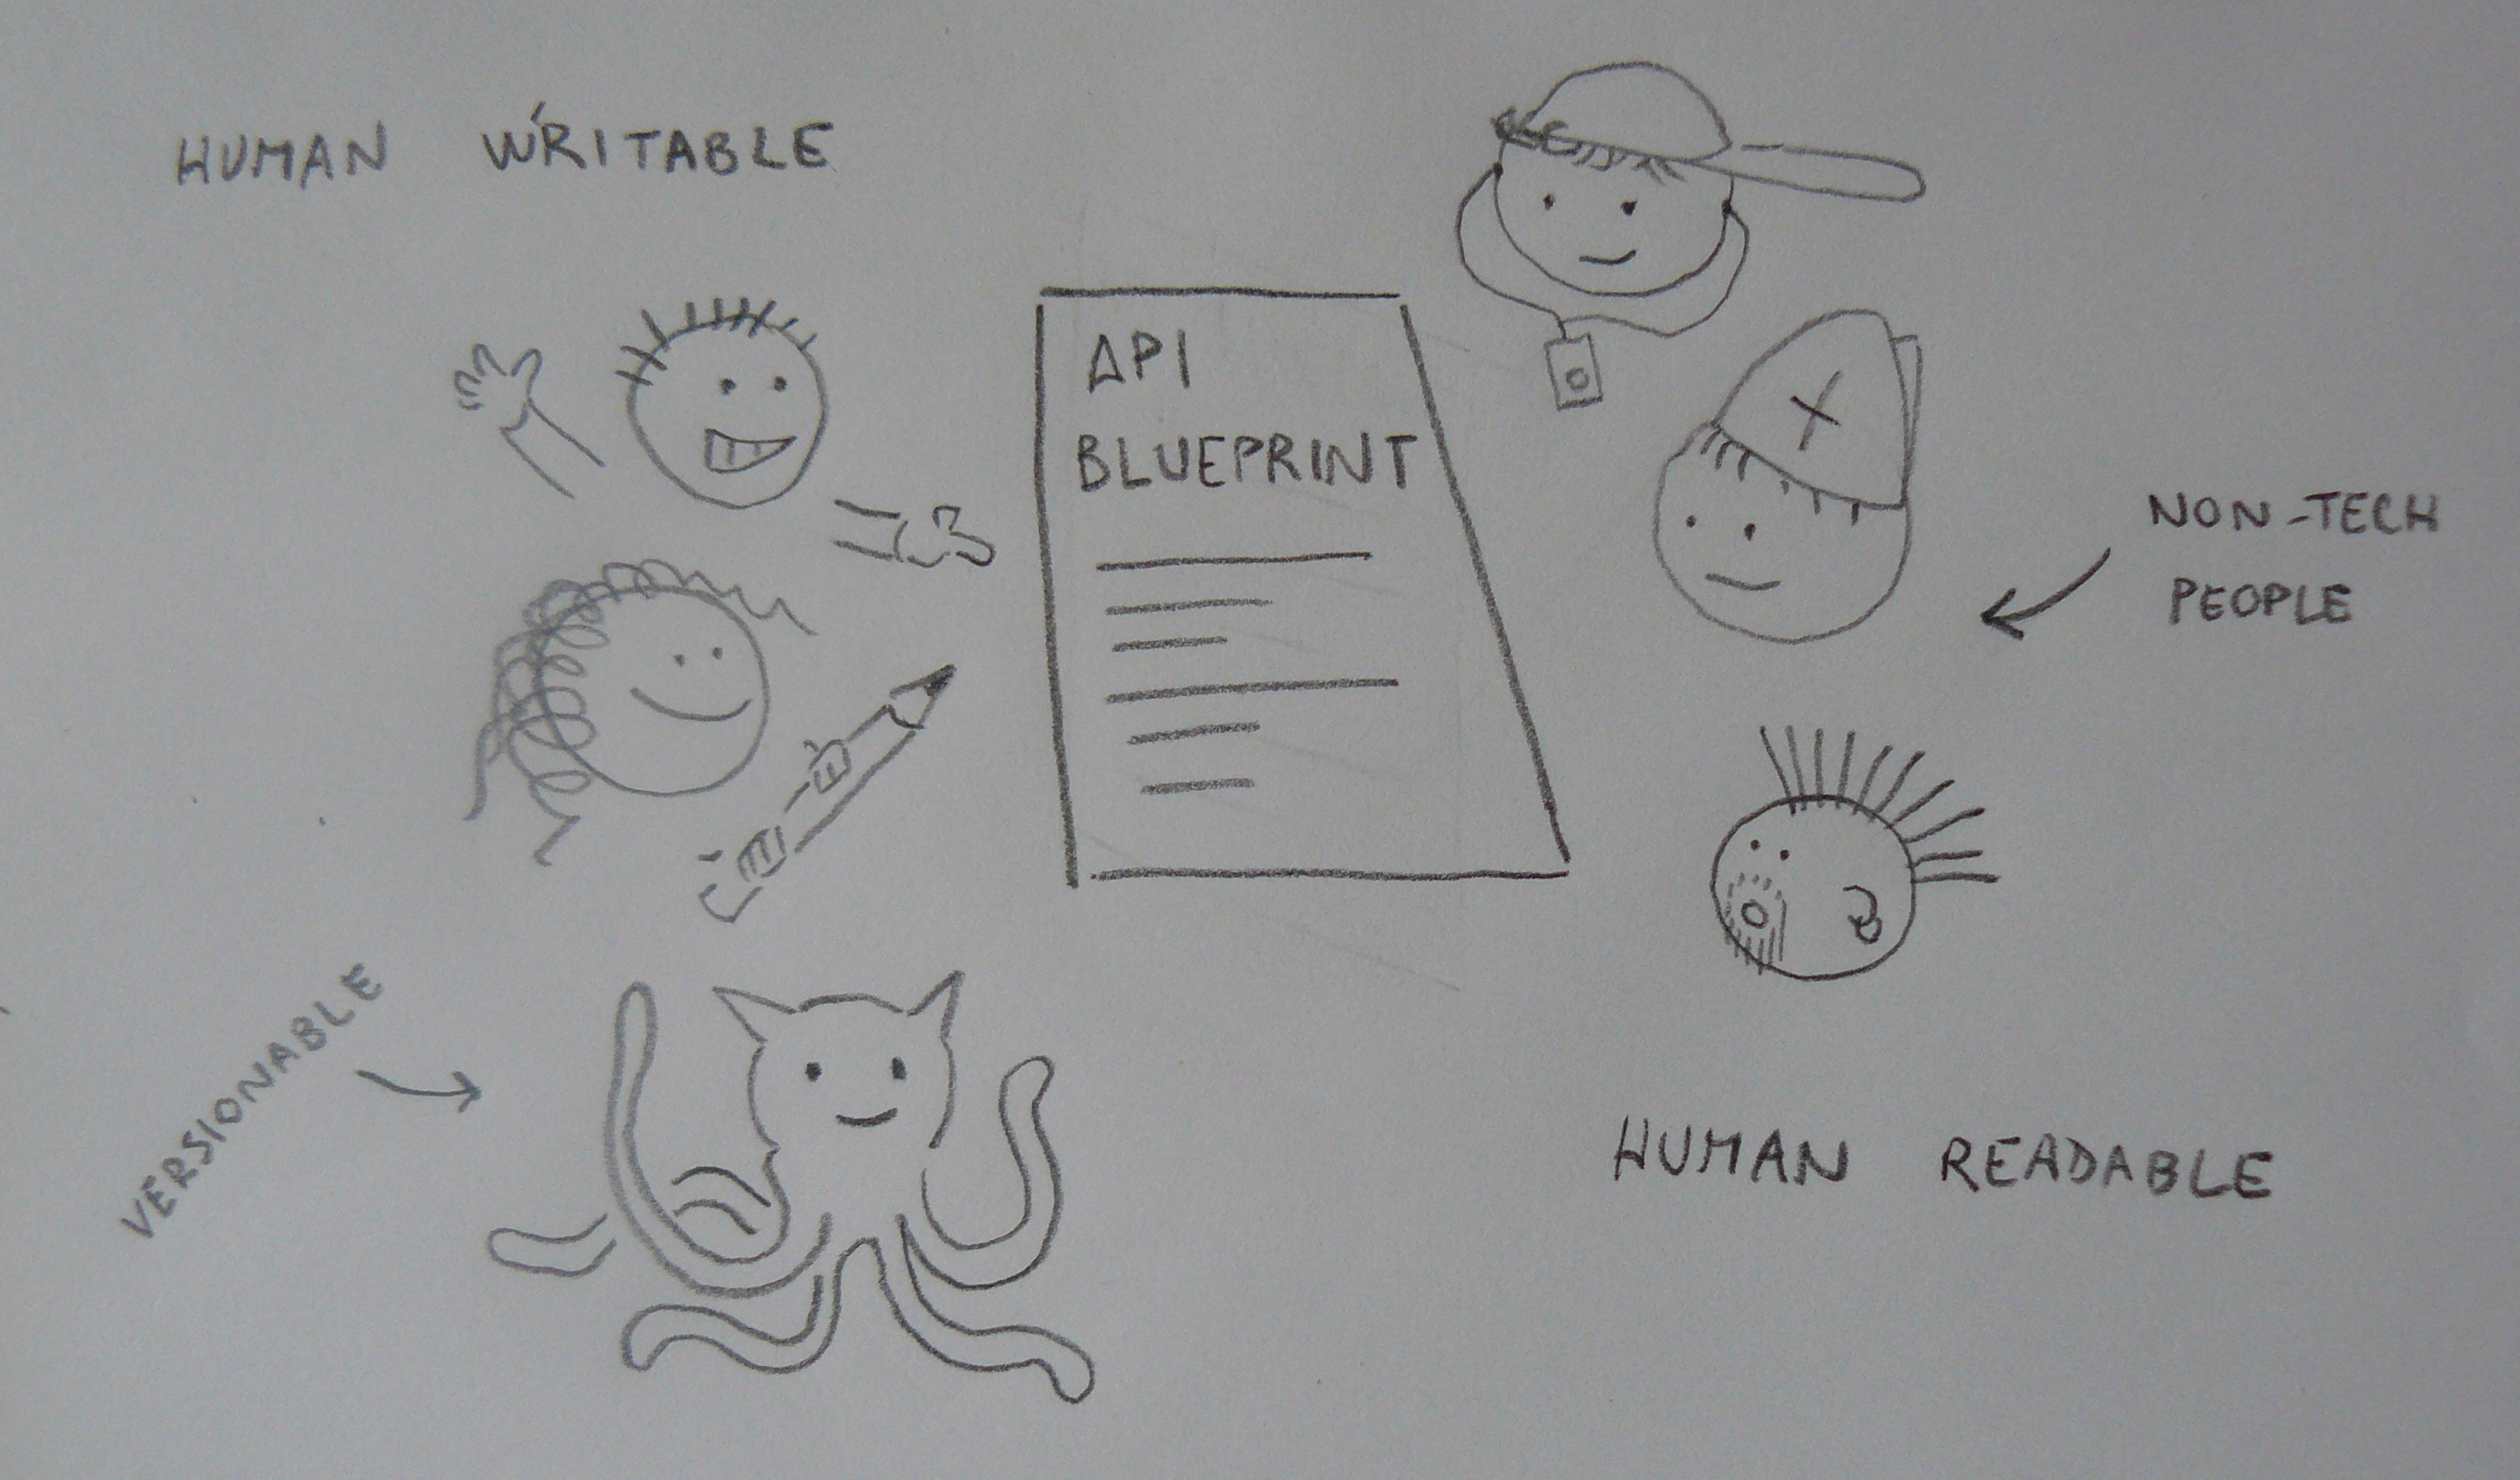 HUMAN WRITABLE
API
BLUEPRINT
NON-TECH
PEOPLE
VERSIONABLE
HUMAN READABLE